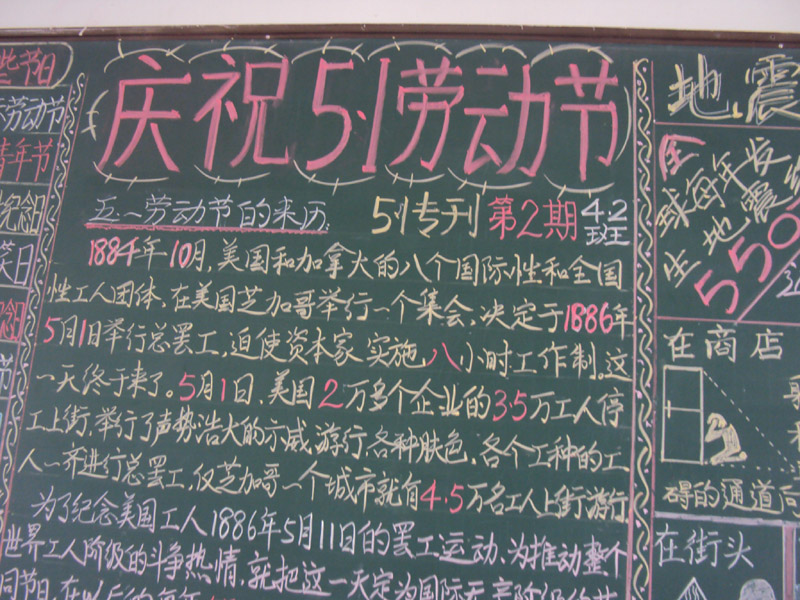 庆祝5.1劳动节
五一劳动节的来历
5.1专刊 第2期 4.2班
1884年10月,美国和加拿大的八个国际性和全国
性工人团体,在美国芝加哥举行一个集会,决定于1886年
5月1日举行总罢工,迫使资本家实施八小时工作制。这
一天终于来了。5月1日,美国2万多个企业的35万工人停
工上街,举行了声势浩大的示威游行,各种肤色、各个工种的工
人一齐进行总罢工,仅芝加哥一个城市就有4.5万名工人上街游行
为了纪念美国工人1886年5月11日的罢工运动、为推动整个
世界工人阶级的斗争热情,就把这一天定为国际
些节日
劳动节
青年节
念
笑日
念
节
地震
全球每年发
生地震
550
在商店
碍的通道向
在街头